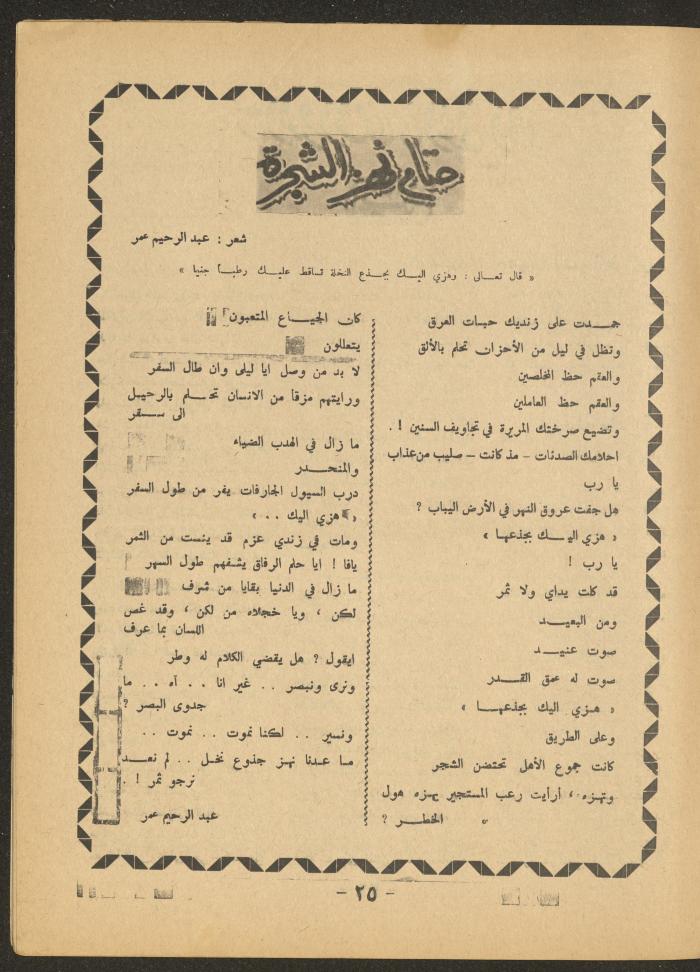 حتام نهز الشجرة
شعر : عبد الرحيم عمر
« قال تعالى : وهزي اليـك بجذع النخلة تساقط عليـك رطبـا جنيا »
جمـدت على زنديك حبسات العرق
وتظل في ليل من الأحزان تحلم بالألق
والعقم حظ المخلصين
والعقم حظ العاملين
وتضيع صرختك المريرة في تجاويف السنين ! .
احلامك الصدئات - مذ كانت - صليب من عذاب
يا رب
هل جفت عروق النهر في الأرض اليباب ؟
« هزي اليـك بجذعها »
يا رب !
قد كلت يداي ولا ثمر
ومن البعيـد
صوت عنيـد
صوت له عمق القـدر
« هـزي اليك بجذعهـا »
وعلى الطريق
كانت جموع الأهل تحتضن الشجر
وتهزه ، أرأيت رعب المستجير يهزه هول
الخطـر ؟
كان الجيـاع المتعبون
يتعللون
لا بد من وصل ايا ليلى وان طال السفر
ورايتهم مزقا من الانسان تحـلم بالرحيـل
الى سـقر
ما زال في الهدب الضياء
والمنحـدر
درب السيول الجارفات يفر من طول السفر
« هزي اليك . . »
ومات في زندي عزم قد يئست من الثمر
يافا ! ايا حلم الرفاق يشفهم طول السهر
ما زال في الدنيا بقايا من شرف
لكن ، ويا خجلاه من لكن ، وقد غص
اللسان بما عرف
ايقول ؟ هل يقضي الكلام له وطر
ونرى ونبصر . . غير انا . . آه . . ما
جدوى البصر ؟
ونسير . . لكنا نموت . . نموت . .
مـا عـدنا نهـز جذوع نخل . . لم نعـد
نرجو ثمر ! .
عبد الرحيم عمر
- ٢٥ -